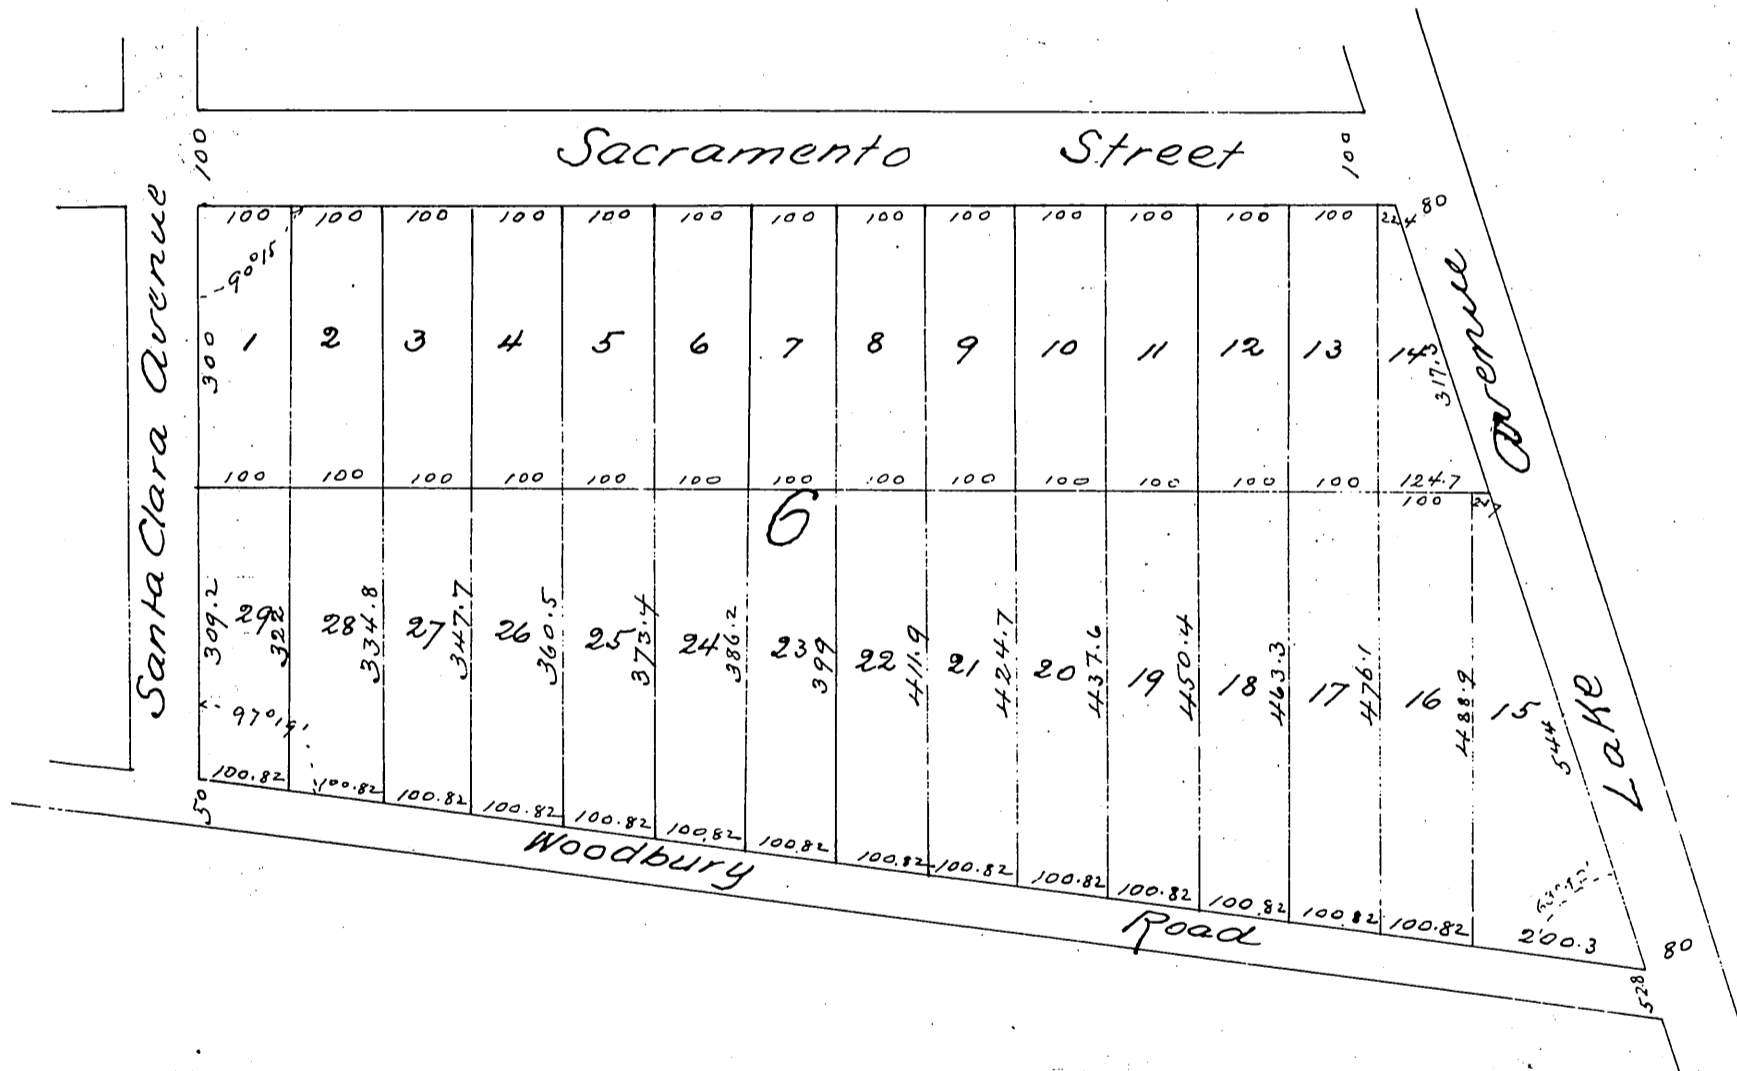 Sacramento Street
100
100
Santa Clara Avenue
100 100 100 100 100 100 100 100 100 100 100 100 100 22.4 80
90°15'
300
1 2 3 4 5 6 7 8 9 10 11 12 13 14
317.3
Avenue
100 100 100 100 100 100 100 100 100 100 100 100 100 124.7
100
6
309.2
29 322 28 334.8 27 347.7 26 360.5 25 373.4 24 386.2 23 399 22 411.9 21 424.7 20 437.6 19 450.4 18 463.3 17 476.1 16 488.9 15 544
Lake
97°19'
100.82 100.82 100.82 100.82 100.82 100.82 100.82 100.82 100.82 100.82 100.82 100.82 100.82 100.82 200.3
50
Woodbury Road
80
52.8